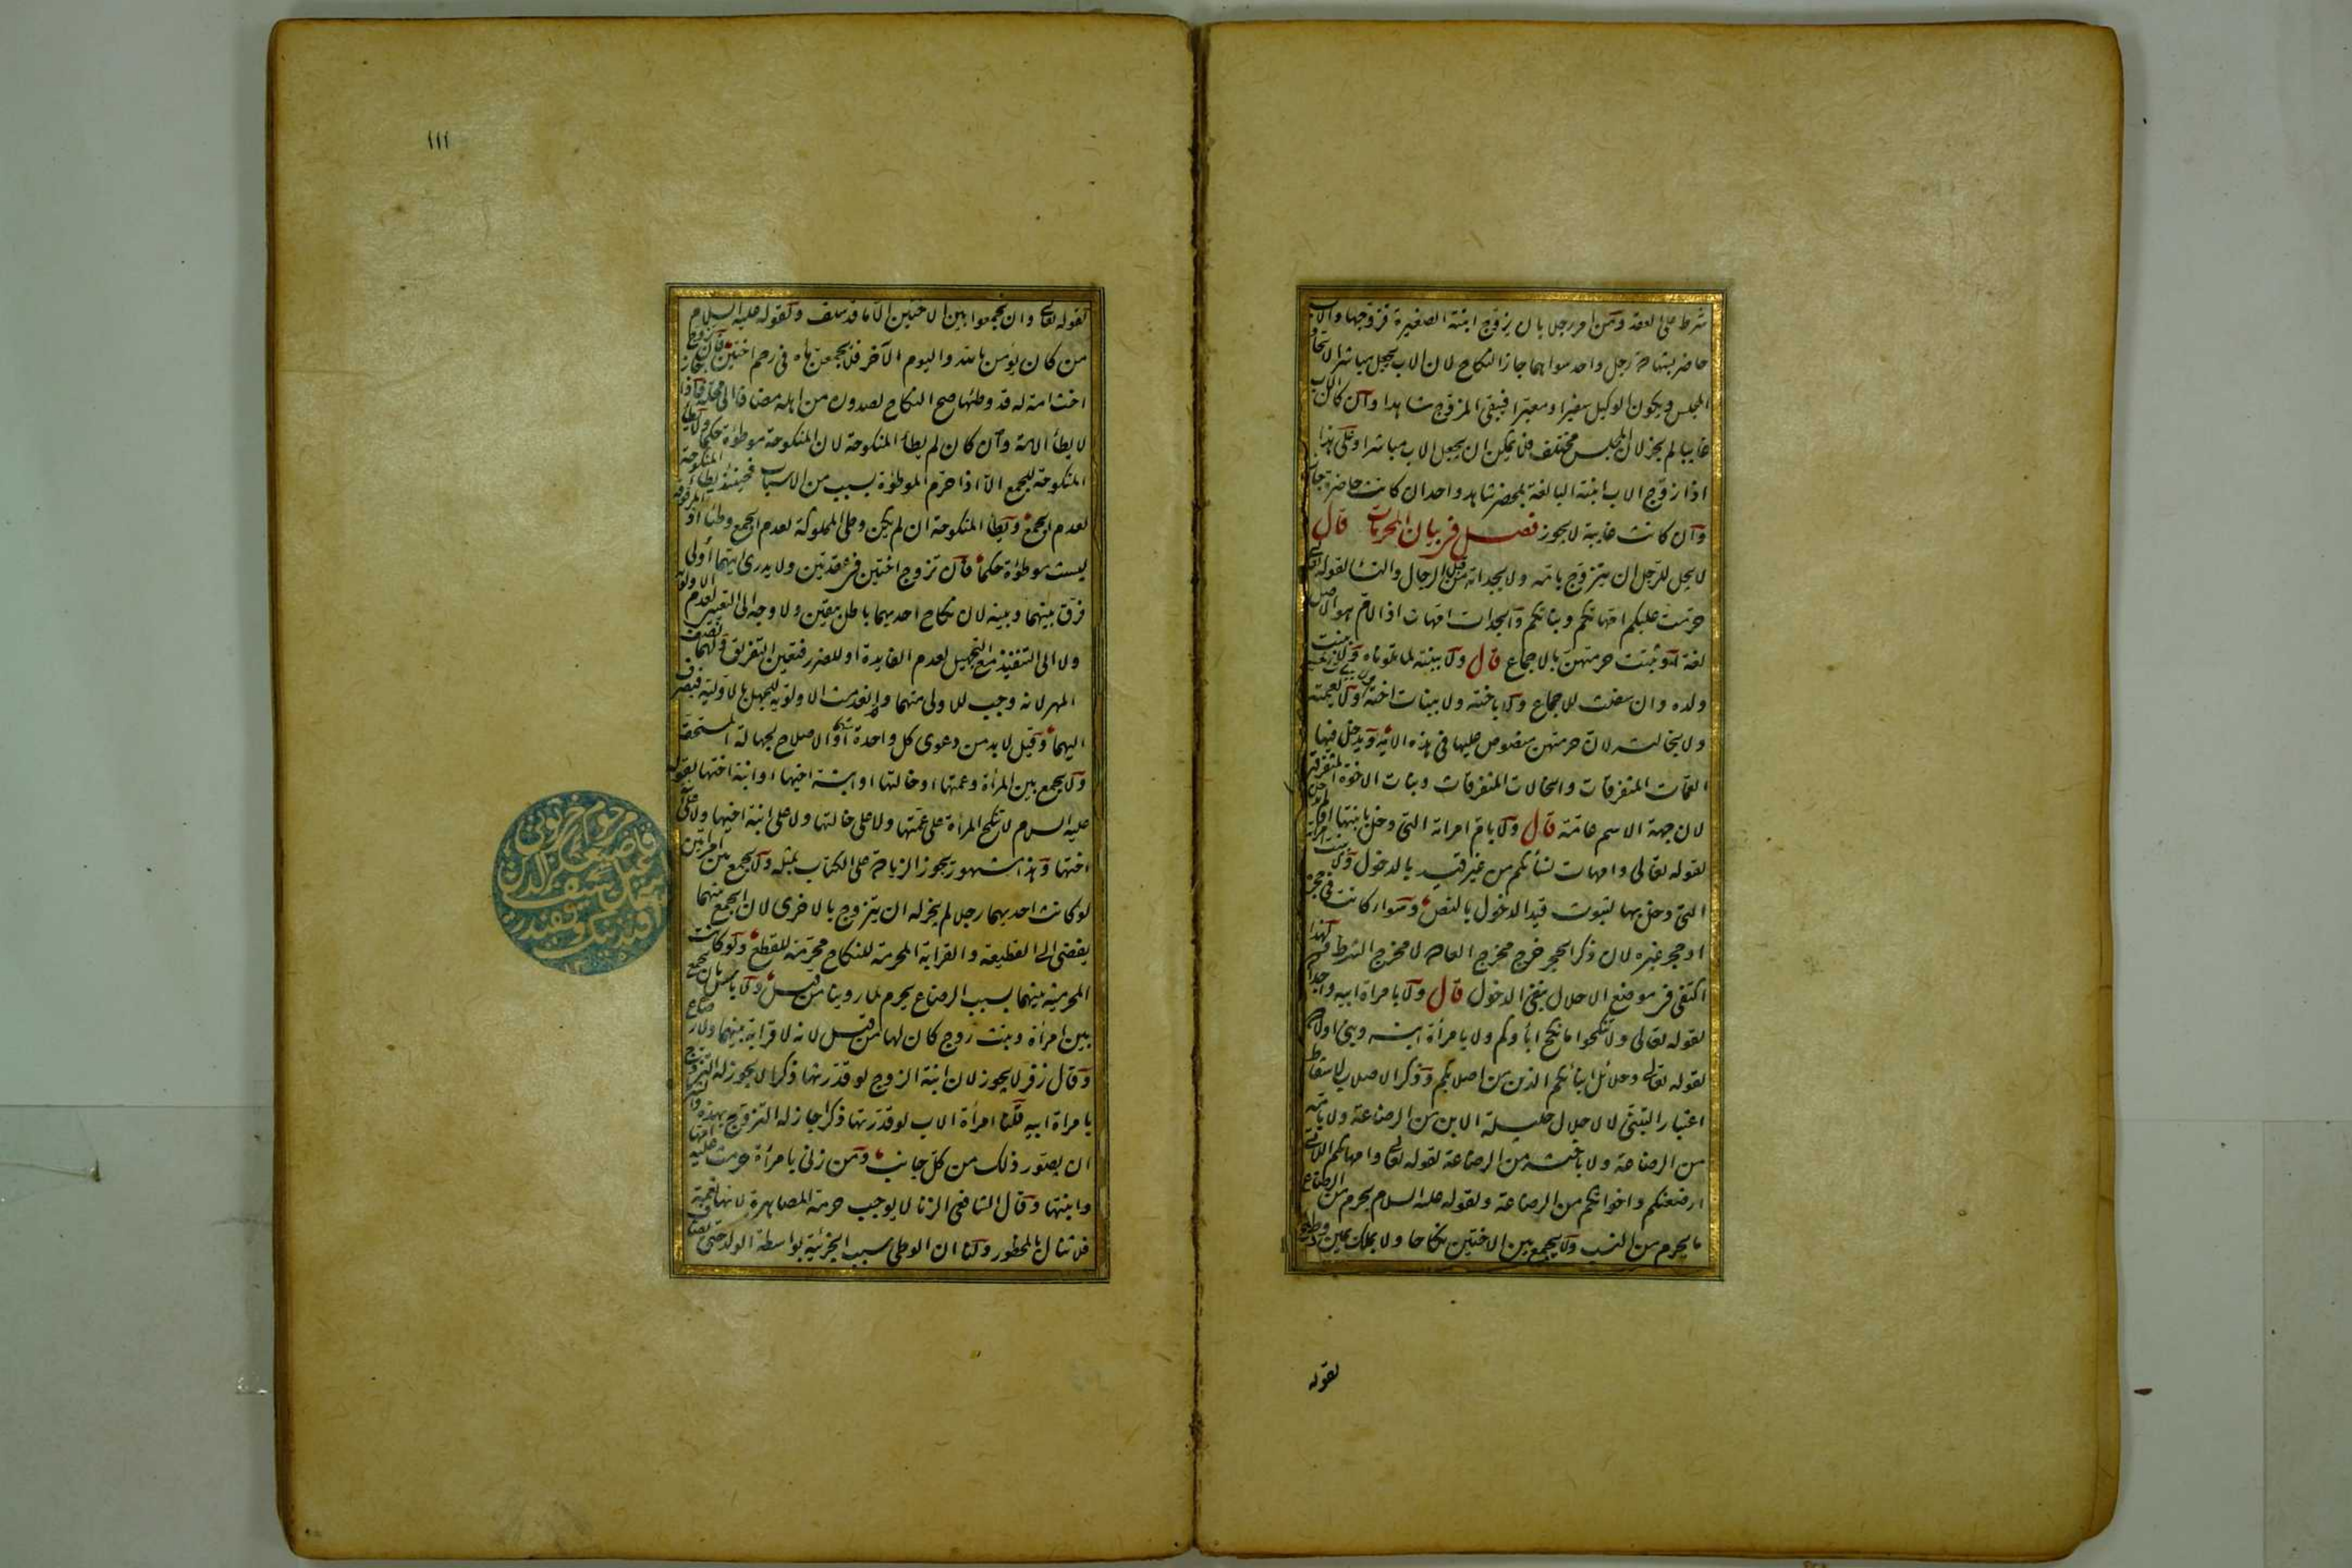 شرط على العقد ومن امر رجلا بان يزوج ابنته الصغيرة فزوجها والاب
حاضر بشهادة رجل واحد سواهما جاز النكاح لان الاب يجعل مباشرا لاتحاد
المجلس ويكون الوكيل سفيرا ومعبرا فيبقى المزوج شاهدا وان كان الاب
غايبا لم يجز لان المجلس مختلف فلا يمكن ان يجعل الاب مباشرا وعلى هذا
اذا زوج الاب ابنته البالغة بمحضر شاهد واحد ان كانت حاضرة جاز
وان كانت غايبة لا يجوز فصل في بيان المحرمات قال
لا يحل للرجل ان يتزوج بامه ولا بجداته من قبل الرجال والنساء لقوله تعالى
حرمت عليكم امهاتكم وبناتكم والجدات امهات اذ الام هو الاصل
لغة او ثبتت حرمتهن بالاجماع قال ولا ببنته لما تلوناه ولا ببنت
ولده وان سفلت للاجماع ولا باخته ولا ببنات اخته ولا بعمته
ولا بخالته لان حرمتهن منصوص عليها في هذه الاية ويدخل فيها
العمات المتفرقات والخالات المتفرقات وبنات الاخوة المتفرقين
لان جهة الاسم عامة قال ولا بام امراته التي دخل بابنتها او لم يدخل
لقوله تعالى وامهات نسائكم من غير قيد بالدخول ولا ببنت امراته
التي دخل بها لثبوت قيد الدخول بالنص وسواء كانت في حجره
او حجر غيره لان ذكر الحجر خرج مخرج العادة لا مخرج الشرط ولهذا
اكتفى في موضع الاحلال بنفي الدخول قال ولا بامراة ابيه واجداده
لقوله تعالى ولا تنكحوا ما نكح اباؤكم ولا بامرأة ابنه وبني اولاده
لقوله تعالى وحلائل ابنائكم الذين من اصلابكم وذكر الاصلاب لاسقاط
اعتبار التبني لا لاحلال حليلة الابن من الرضاعة ولا بامه
من الرضاعة ولا باخته من الرضاعة لقوله تعالى وامهاتكم اللاتي
ارضعنكم واخواتكم من الرضاعة ولقوله عليه السلام يحرم من الرضاع
ما يحرم من النسب ولا يجمع بين الاختين نكاحا ولا بملك يمين وطئا
لقوله
١١١
لقوله تعالى وان تجمعوا بين الاختين الا ما قد سلف ولقوله عليه السلام
من كان يؤمن بالله واليوم الآخر فلا يجمعن ماءه في رحم اختين فان تزوج
اخت امة له قد وطئها صح النكاح لصدوره من اهله مضافا الى محله واذا جاز
لا يطأ الامة وان كان لم يطأ المنكوحة لان المنكوحة موطؤة حكما ولا يطأ
المنكوحة للجمع الا اذا حرم الموطؤة بسبب من الاسباب فحينئذ يطأ المنكوحة
لعدم الجمع ويطأ المنكوحة ان لم يكن وطئ المملوكة لعدم الجمع وطئا اذ المرقوقة
ليست موطؤة حكما فان تزوج اختين في عقدتين ولا يدري ايتهما أولى
فرق بينهما وبينه لان نكاح احديهما باطل بيقين ولا وجه الى التعيين لعدم الاولوية
ولا الى التنفيذ مع التجهيل لعدم الفايدة او للضرر فتعين التفريق ولهما نصف
المهر لانه وجب للاولى منهما وانعدمت الاولوية للجهل بالاولية فيصرف
اليهما وقيل لا بد من دعوى كل واحدة انها الاولى او الاصلاح لجهالة المستحقة
ولا يجمع بين المرأة وعمتها او خالتها او ابنة اخيها او ابنة اختها لقوله
عليه السلام لا تنكح المرأة على عمتها ولا على خالتها ولا على ابنة اخيها ولا على ابنة
اختها وهذا مشهور يجوز الزيادة على الكتاب بمثله ولا يجمع بين امراتين
لو كانت احديهما رجلا لم يجز له ان يتزوج بالاخرى لان الجمع بينهما
يفضي الى القطيعة والقرابة المحرمة للنكاح محرمة للقطع ولو كانت
المحرمية بينهما بسبب الرضاع يحرم لما روينا من قبل ولا باس بان يجمع
بين امرأة وبنت زوج كان لها من قبل لانه لا قرابة بينهما ولا رضاع
وقال زفر لا يجوز لان ابنة الزوج لو قدرتها ذكرا لا يجوز له التزوج
بامراة ابيه قلنا امرأة الاب لو قدرتها ذكرا جاز له التزوج بهذه والشرط
ان يصور ذلك من كل جانب ومن زنى بامرأة حرمت عليه امها
وابنتها وقال الشافعي الزنا لا يوجب حرمة المصاهرة لانها نعمة
فلا تنال بالمحظور ولنا ان الوطئ سبب الجزئية بواسطة الولد حتى يضاف